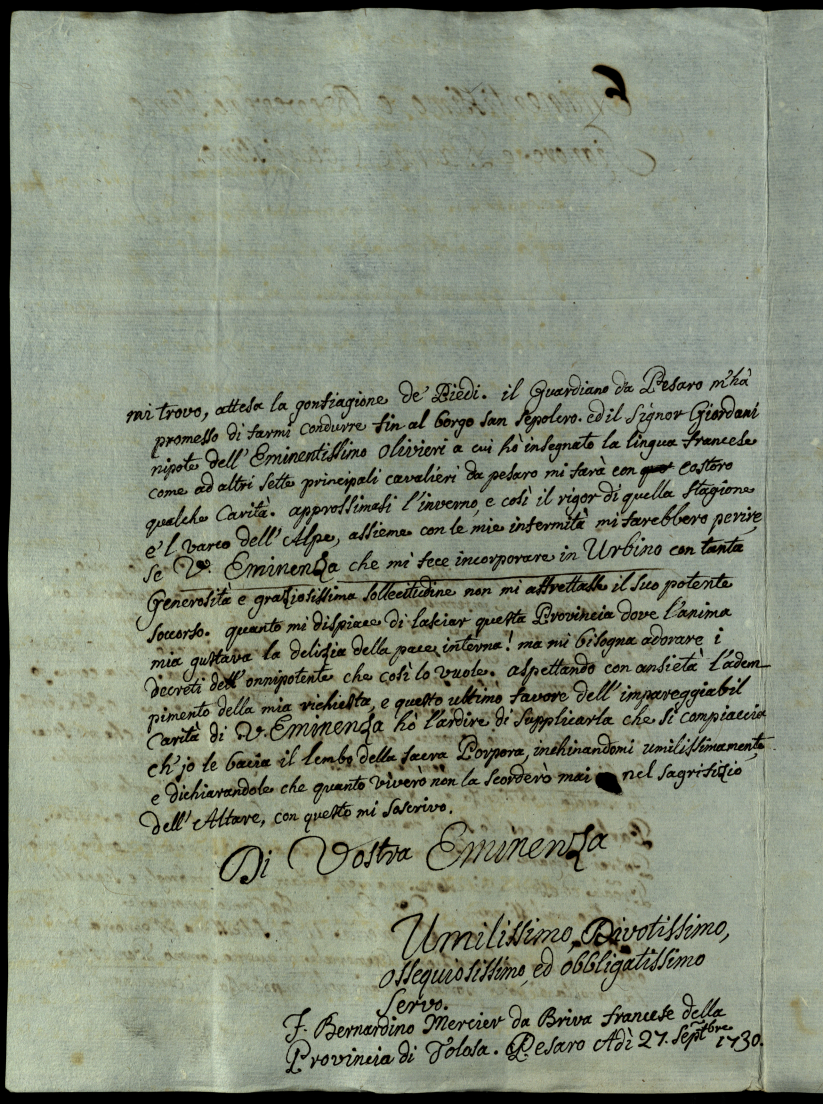 mi trovo, attesa la gonfiagione de' Piedi. il Guardiano da Pesaro m'hà
promesso di farmi condurre fin al borgo san sepolcro. ed il Signor Giordani
nipote dell'Eminentissimo olivieri a cui hò insegnato la lingua francese
come ad altri sette principali cavalieri da pesaro mi farà con costoro
qualche Carità. approssimasi l'inverno, e così il rigor di quella stagione
e 'l varco dell'Alpe, assieme con le mie infermità mi farebbero perire,
se V. Eminenza che mi fece incorporare in Urbino con tanta
Generosità e graziosissima sollecitudine non mi affrettasse il suo potente
soccorso. quanto mi dispiace di lasciar questa Provincia dove l'anima
mia gustava la delizia della pace interna! ma mi bisogna adorare i
decreti dell'onnipotente che così lo vuole. aspettando con ansietà l'adem-
pimento della mia richiesta, e questo ultimo favore dell'impareggiabil
Carità di V. Eminenza hò l'ardire di supplicarla che si compiaccia
ch'jo le bacia il lembo della sacra Porpora, inchinandomi umilissimamente
e dichiarandole che quanto viverò non la scorderò mai nel sagrifizio
dell'Altare, con questo mi soscrivo.
Di Vostra Eminenza
Umilissimo, Divotissimo,
ossequiosissimo, ed obbligatissimo
servo.
F. Bernardino Mercier da Briva francese della
Provincia di Tolosa. Pesaro Adì 27. Septbre 1730.